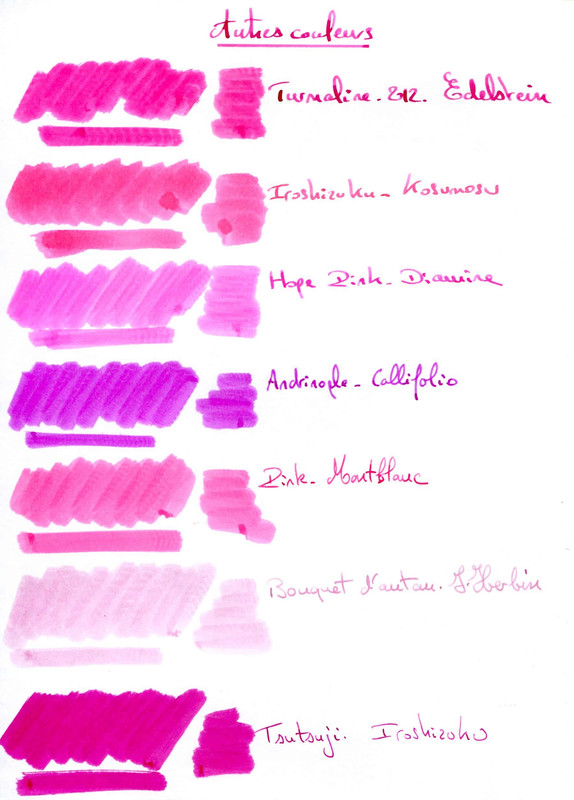 Autres couleurs
Turmaline. 2012. Edelstein
Iroshizuku - Kosumosu
Hope Pink - Diamine
Andrinople - Callifolio
Pink - Montblanc
Bouquet d'antan. J. Herbin
Tsutsuji. Iroshizuku